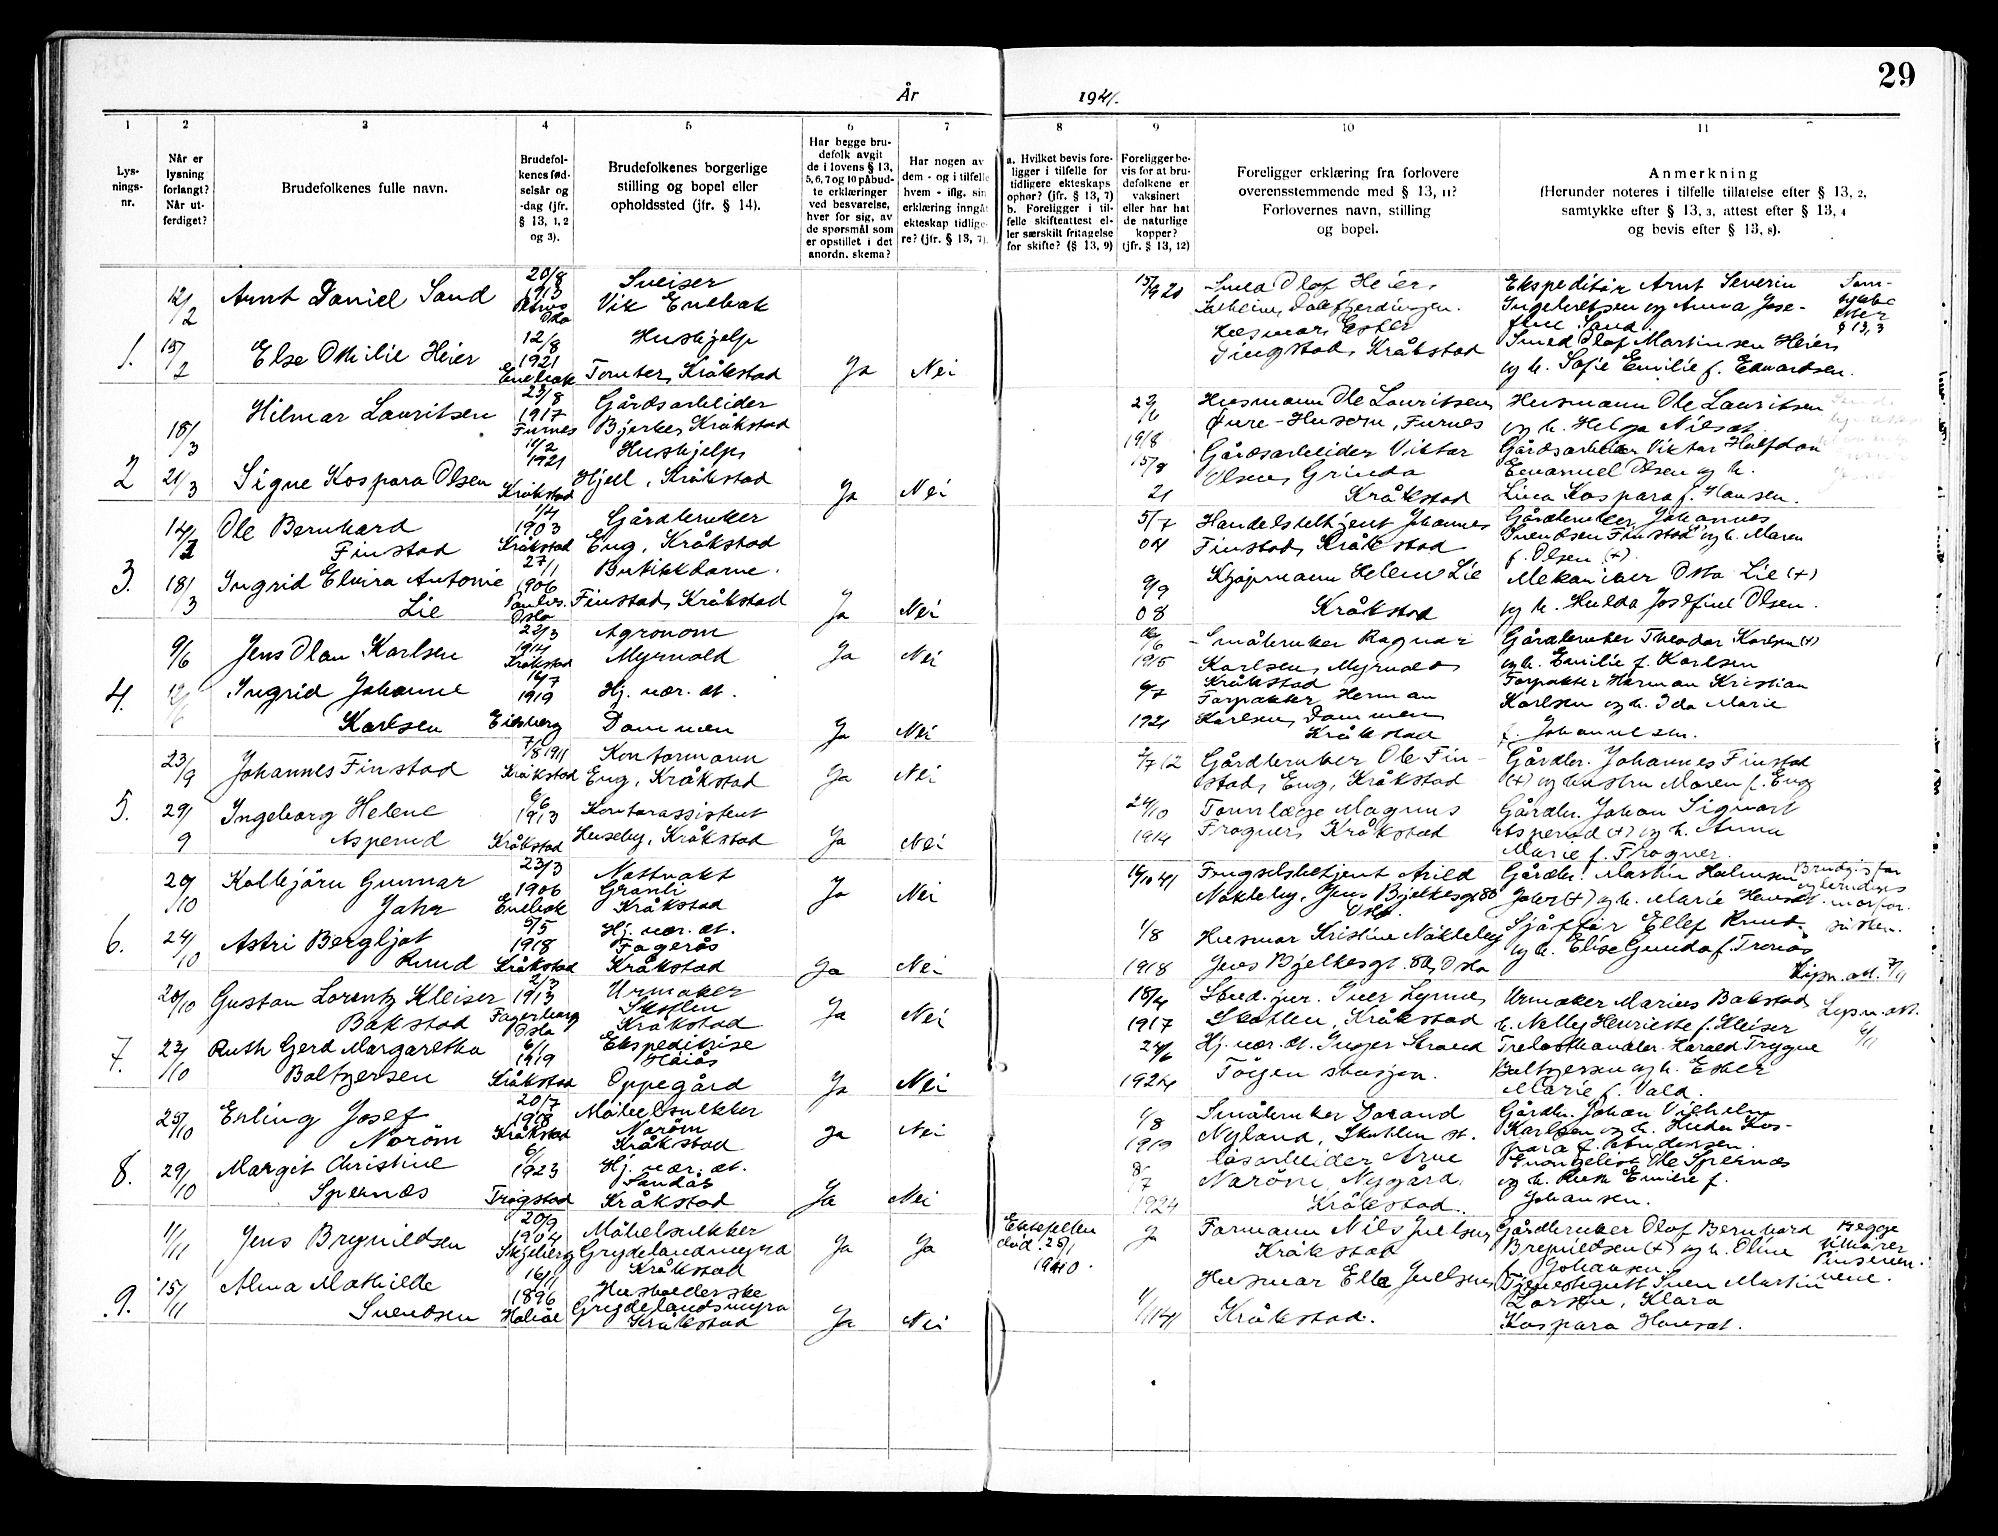 29
År 1941.
1 2 3 4 5 6 7 8 9 10 11
Lys-
nings-
nr.
Når er
lysning
forlangt?
Når ut-
ferdiget?
Brudefolkenes fulle navn.
Brudefol-
kenes fød-
selsår og
-dag (jfr.
§ 13, 1, 2
og 3).
Brudefolkenes borgerlige
stilling og bopel eller
opholdssted (jfr. § 14).
Har begge bru-
defolk avgit
de i lovens § 13,
5, 6, 7 og 10 påbud-
te erklæringer
ved besvarelse,
hver for sig, av
de spørsmål som
er opstillet i det
anordn. skema?
Har nogen av
dem - og i tilfelle
hvem - iflg. sin
erklæring inngåt
ekteskap tidlige-
re? (jfr. § 13, 7).
a. Hvilket bevis fore-
ligger i tilfelle for
tidligere ekteskaps
ophør? (jfr. § 13, 7)
b. Foreligger i til-
felle skifteattest el-
ler særskilt fritagelse
for skifte? (§ 13, 9)
Foreligger be-
vis for at bru-
defolkene er
vaksinert
eller har hat
de naturlige
kopper?
(jfr. § 13, 12)
Foreligger erklæring fra forlovere
overensstemmende med § 13, 11?
Forlovernes navn, stilling
og bopel.
Anmerkning
(Herunder noteres i tilfelle tillatelse efter § 13, 2,
samtykke efter § 13, 3, attest efter § 13, 4
og bevis efter § 13, 8).
1.
12/2
15/2
Arnt Daniel Sand
20/8
1913
Oslo
Sveiser
Vik Enebak
Else Othilie Heier
12/8
1921
Enebak
Hushjelp
Tomter, Kråkstad
Ja Nei
15/9 21
Smed Olof Heier,
Husmor Ester
Tingstad, Kråkstad
Ekspeditør Arnt Severin
Ingebretsen og Anna Jose-
fine Sand.
Smed Olof Martinsen Heier
og h. Sofie Emilie f. Edvardsen.
Sam-
tykke
efter
§ 13,3
2
18/3
21/3
Hilmar Lauritsen
23/8
1917
Furnes
Gårdsarbeider
Bjerke, Kråkstad
Signe Kaspara Olsen
1921
Kråkstad
Hushjelp
Hjell, Kråkstad
Ja Nei
1918
15/8
21
Husmann Ole Lauritsen,
Furnes
Gårdsarbeider Viktor
Olsen, Grinda
Kråkstad
Husmann Ole Lauritsen
og h. Helga Nilsdt.
Gårdsarbeider Viktor Halfdan
Emanuel Olsen og h.
Lina Kaspara f. Hansen.
3.
18/3
Ole Bernhard
Finstad
1/4
1903
Kråkstad
Gårdbruker
Eng, Kråkstad
Ingrid Elvira Antonie
Lie
27/1
1906
Paulus.
Oslo
Butikkdame.
Finstad, Kråkstad
Ja Nei
5/7
04
9/9
08
Handelsbetjent Johannes
Finstad, Kråkstad
Kjøpmann Helene Lie
Kråkstad
Gårdbruker Johannes
Svendsen Finstad og h. Maren
f. Olsen (+).
Mekaniker Lie (+)
og h. Hulda Josefine Olsen.
4.
9/6
12/6
Jens Olav Karlsen
22/3
1914
Kråkstad
Agronom
Myrvold
Ja Nei
Ingrid Johanne
Karlsen
16/7
1919
Eidsberg
Hj. vær. dt.
Dammen
Ja Nei
1915
1921
Småbruker Ragnar
Karlsen, Myrvold,
Kråkstad
Forpakter Herman
Karlsen, Dammen
Kråkstad
Gårdbruker Theodor Karlsen (+)
og h. Emilie f. Karlsen
Forpakter Herman Kristian
Karlsen og h. Ida Marie
f. Johannesen.
5.
23/9
29/9
Johannes Finstad
7/8 1911
Kråkstad
Kontormann
Eng, Kråkstad
Ja Nei
Ingeborg Helene
Asperud
6/6
1913
Kråkstad
Kontorassistent
Huseby, Kråkstad
Ja Nei
2/7 12
24/10
1914
Gårdbruker Ole Fin-
stad, Eng, Kråkstad
Tannlæge Magnus
Frogner, Kråkstad
Gårdbr. Johannes Finstad
(+) og hustru Maren f. Eng
Gårdbr. Johan Sigvart
Asperud (+) og h. Anna
Marie f. Frogner.
6.
20/10
24/10
Kolbjørn Gunnar
Jahr
23/3
1906
Enebak
Nattvakt
Granli
Kråkstad
Ja Nei
Astri Bergljot
Ruud
5/5
1918
Kråkstad
Hj. vær. dt.
Fagerås
Kråkstad
Ja Nei
14/10 41
1/8
1918
Fengselsbetjent Arild
Nakleby, Jens Bjelkesgt 80
Oslo.
Husmor Kristine Nakleby
Jens Bjelkesgt. 80, Oslo
Gårdbr. Martin Halvorsen
Jahr (+) og h. Marie Hansdt.
Sjåffør Ellef Ruud
og h. Elise Gunda f. Tronås
Brudgs far
og brudens
morfor.
søsken.
Lysn. att. 7/11
7.
20/10
23/10
Gustav Lorentz Kleiser
Bakstad
2/3
1913
Fagerborg
Oslo
Urmaker
Skotlen
Kråkstad
Ja Nei
Ruth Gerd Margaretha
Boltzersen
6/1
1919
Kråkstad
Ekspeditrise
Oppegård
Ja Nei
18/4
1917
24/6
1924
Stud. jur. Iver Lynne,
Skotlen, Kråkstad
Hj. vær. dt. Inger Strand
Tøigen stasjon.
Urmaker Marius Bakstad
h. Nelly Henriette f. Kleiser
Trelasthandler Harald Trygve
Boltzersen og h. Ester
Marie f. Vold.
Lysn. att.
6/11
8.
25/10
29/10
Erling Josef
Norøm
20/7
1918
Kråkstad
Møbelsnekker
Norøm
Kråkstad
Ja Nei
Margit Christine
Spernæs
6/1
1923
Trøgstad
Hj. vær. dt.
Sandås
Kråkstad
Ja Nei
1/8
1919
8/7
1924
Småbruker
Nyland, Skotlen st.
arbeider Arne
Norøm, Nygård,
Kråkstad.
Gårdbr. Johan Vilhelm
Karlsen og h. Hulda Kas-
para f. Andersen.
Evangelist Ole Spernæs
og h. Ruth Emilie f.
Johansen.
9.
11/11
15/11
Jens Brynildsen
20/9
1904
Skjeberg
Møbelsnekker
Grydelandsmyra
Kråkstad
Ja Ja
Alma Mathilde
Svendsen
16/11
1896
Hobøl
Husholderske
Grydelandsmyra
Kråkstad
Ja Nei
Ektefellen
død 25/1
1940.
Ja
1/11 41
Formann Nils Juelsen,
Kråkstad
Husmor Ella Juelsen,
Kråkstad.
Gårdbruker Olof Bernhard
Brynildsen (+) og h. Oline
f. Johansen.
Tjenestegutt Sven Martin
Larsen, Klara
Kaspara Hansdt.
Begge
tilhører
Pinseven-
nene.